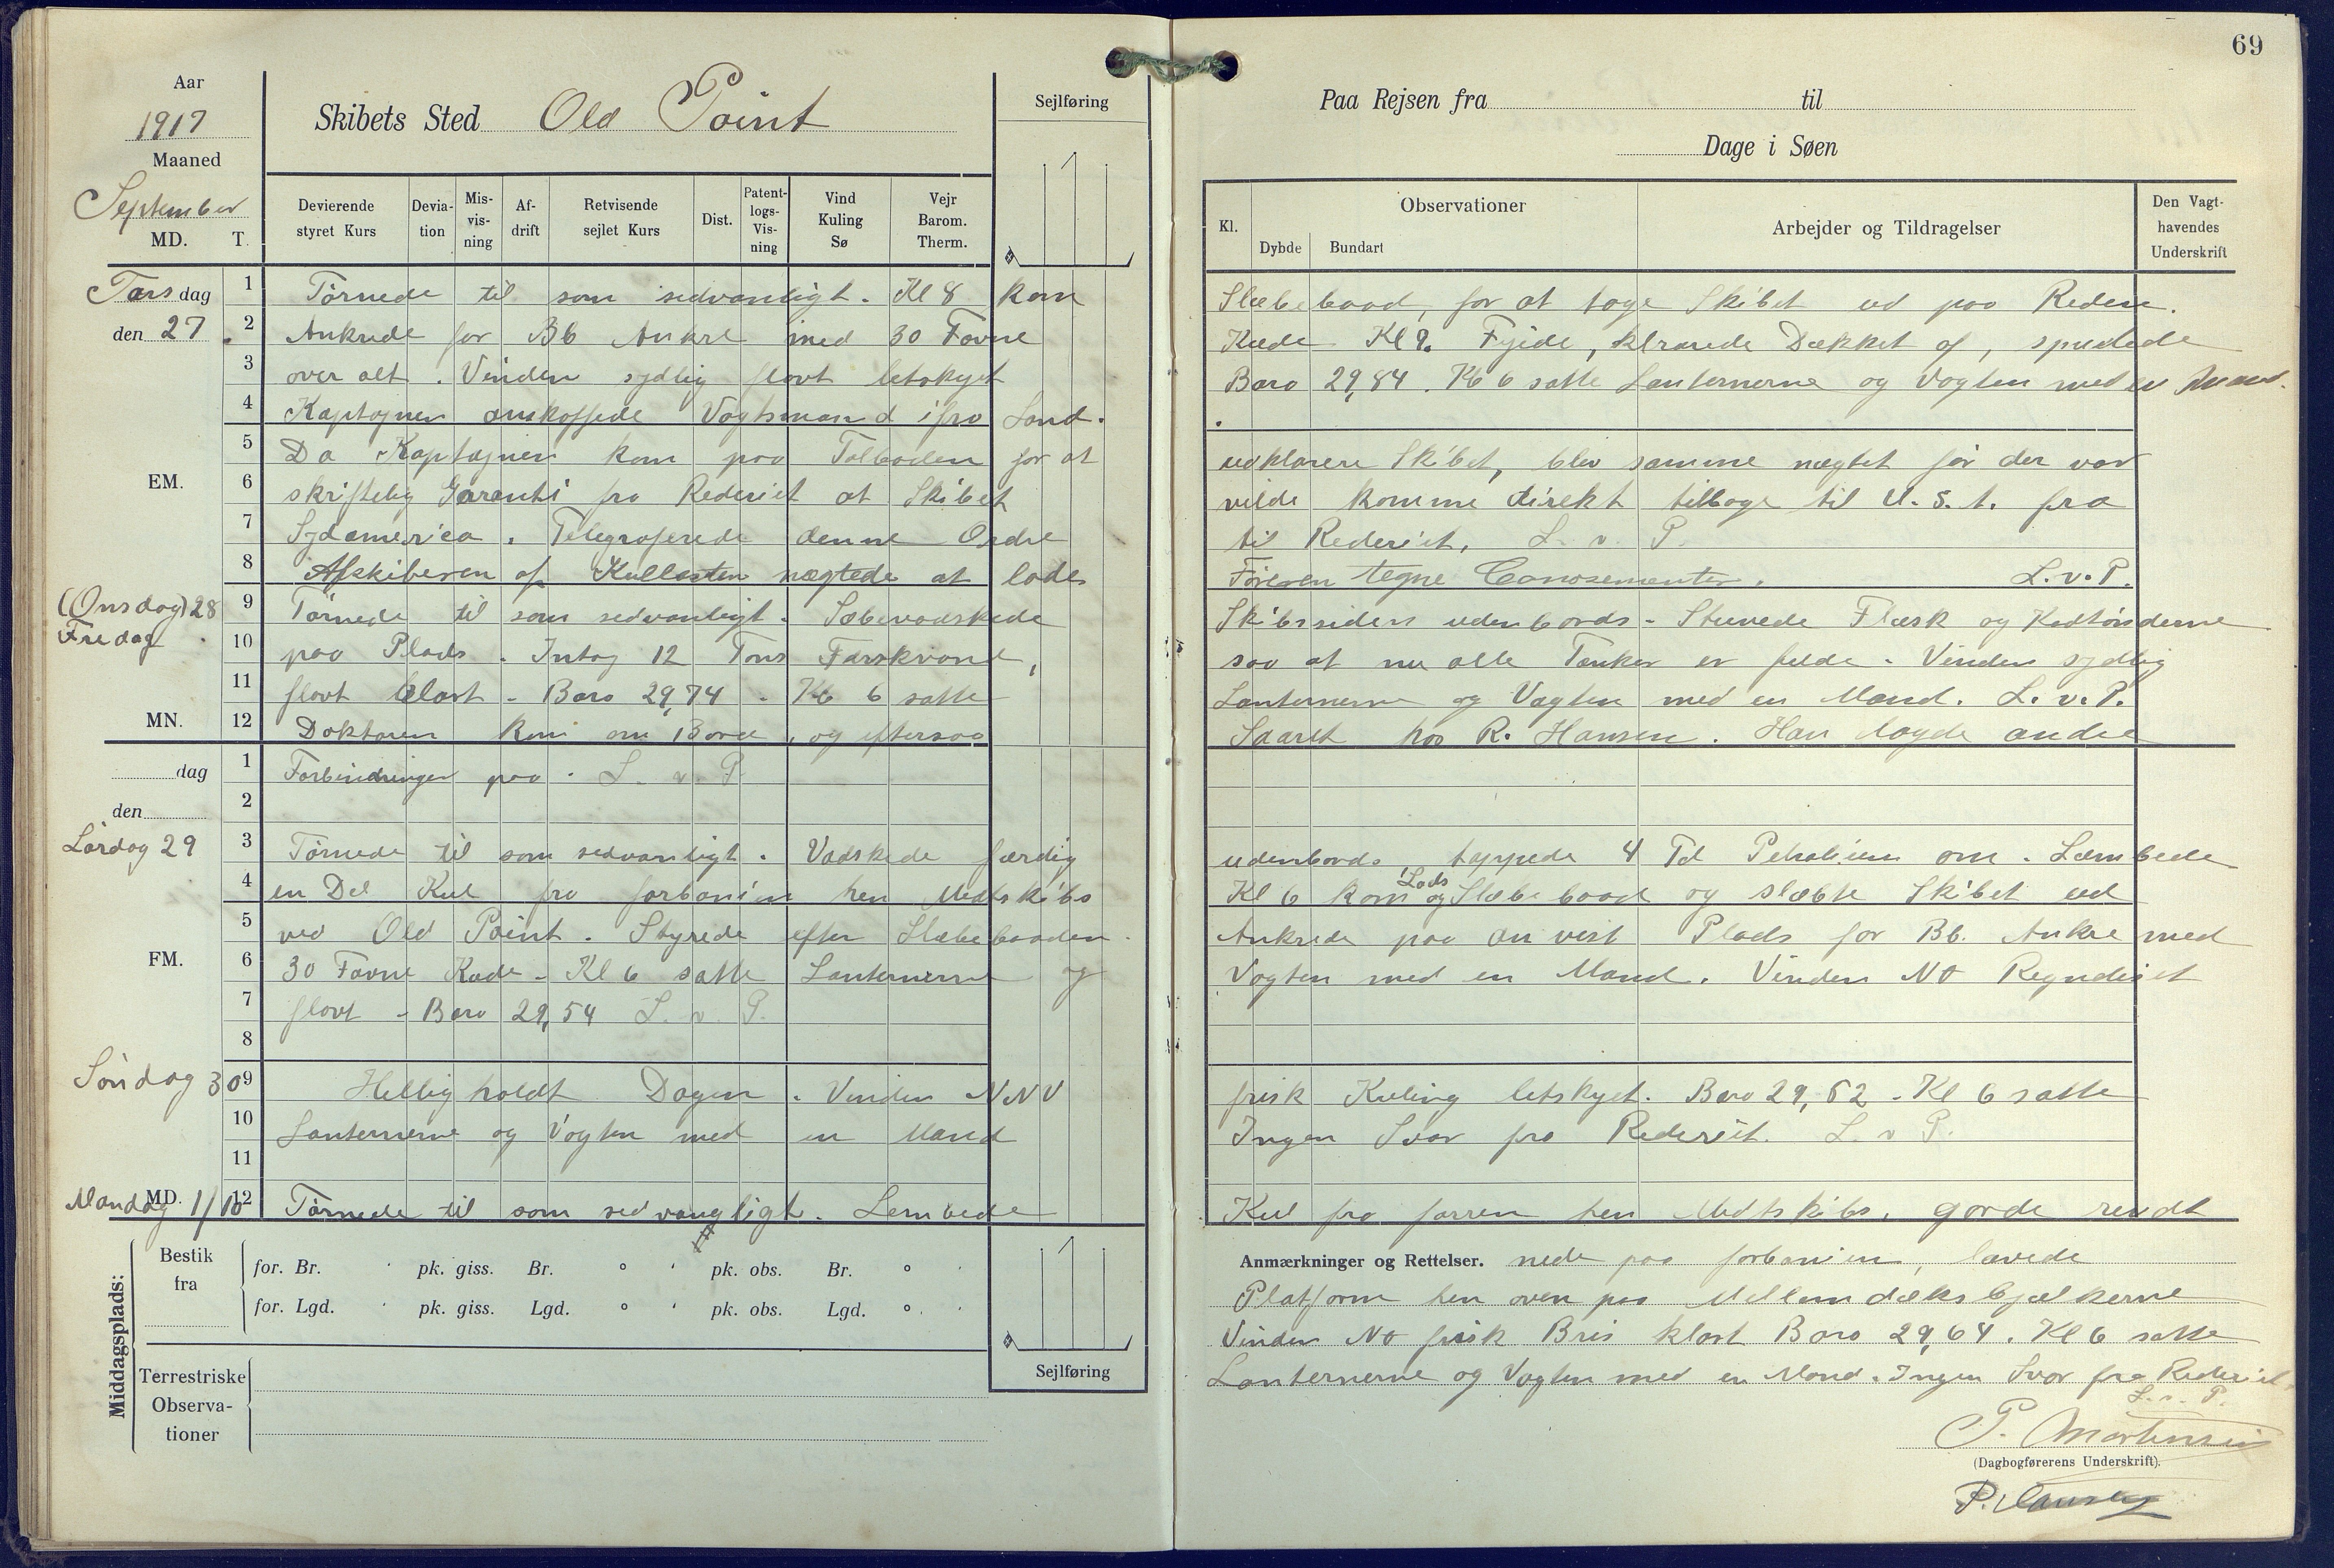 69
Aar
1917
Maaned
September
MD. T.
Skibets Sted Old Point
Sejlføring
Paa Rejsen fra til
Dage i Søen
Devierende styret Kurs
Devia-tion
Mis-vis-ning
Af-drift
Retvisende sejlet Kurs
Dist.
Patent-logs-Vis-ning
Vind Kuling Sø
Vejr Barom. Therm.
Kl.
Observationer
Dybde Bundart
Arbejder og Tildragelser
Den Vagt-havendes Underskrift
Torsdag 1 Tørnede til som sedvanligt. Kl 8 kom Slæbebaad, for at tage Skibet ud paa Reden.
den 27. 2 Ankrede for Bb Anker med 30 Favne Kæde Kl 9. Fyide, klarede Dækket af, spulede
3 over alt. Vinden sydlig flovt letskyet Baro 29,84. Kl 6 satte Lanternerne og Vagten med en Mand.
4 Kaptajnen anskaffede Vagtsmand ifra Land.
5 Da Kaptajnen kom paa Tolboden for at udklarere Skibet, blev samme nægtet før der var
EM. 6 skriftelig Garanti fra Rederiet at Skibet vilde komme direkt tilbage til U.S.A. fra
7 Sydamerica. Telegraferede denne Ordre til Rederiet. L. v. P.
8 Afskiberen af Kullasten nægtede at lade Føreren tegne Conosementer. L.v.P.
(Onsdag) 28 9 Tørnede til som sedvanligt. Sæbevadskede Skibssiden udenbords - Stuvede Flæsk og Kødtønderne
Fredag 10 paa Plads. Intog 12 Tons Færskvand, saa at nu alle Tanker er fulde. Vinden sydlig
11 flovt klart - Baro 29,74 - Kl 6 satte Lanternerne og Vagten med en Mand. L.v.P.
MN. 12 Doktoren kom om Bord, og eftersaa Saaret hos R. Hansen. Han lagde andre
dag 1 Forbindinger paa. L. v. P.
den 2
Lørdag 29 3 Tørnede til som sedvanligt. Vadskede færdig udenbords, tappede 4 Td Petroleum om. Læmbede
4 en Del Kul fra forban'en hen Midtskibs Kl 6 kom Lods og Slæbebaad og slæbte Skibet ud
5 ved Old Point. Styrede efter Slæbebaaden. Ankrede paa anvist Plads for Bb. Anker med
FM. 6 30 Favne Kæde - Kl 6 satte Lanternerne og Vagten med en Mand. Vinden NO Regndiset
7 flovt - Baro 29,54 L. v. P.
8
Søndag 30 9 Helligholdt Dagen. Vinden NNV frisk Kuling letskyet. Baro 29,52 - Kl 6 satte
10 Lanternerne og Vagten med en Mand Ingen Svar fra Rederiet. L. v P.
11
Mandag 1/10 MD. 12 Tørnede til som sedvangligt. Lembede Kul fra forren hen Midtskibs, gorde rendt
Middagsplads:
Bestik fra
for. Br. pk. giss. Br. ° ' pk. obs. Br. ° '
for. Lgd. pk. giss. Lgd. ° ' pk. obs. Lgd. ° '
Sejlføring
Terrestriske Observa-tioner
Anmærkninger og Rettelser. nede paa forban'en, lavede
Platform hen oven paa Mellemdæks bjælkerne
Vinden NO frisk Bris klart Baro 29,64. Kl 6 satte
Lanternerne og Vagten med en Mand. Ingen Svar fra Rederiet.
L.v.P.
P. Mortensen
(Dagbogførerens Underskrift).